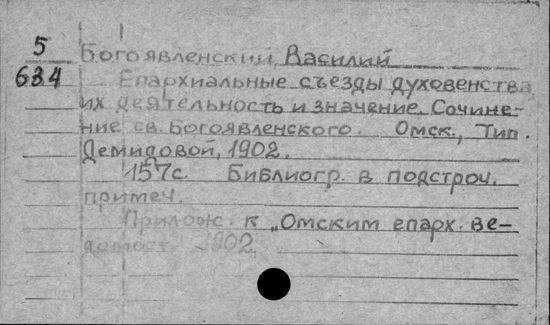 5
634
Богоявленский, Василий
Епархиальные съезды духовенства
их деятельность и значение. Сочине-
ние св. Богоявленского. Омск., Тип.
Демидовой, 1902.
157с. Библиогр. в подстроч.
примеч.
Прилож. к „Омским епарх. ве-
домост. 1902